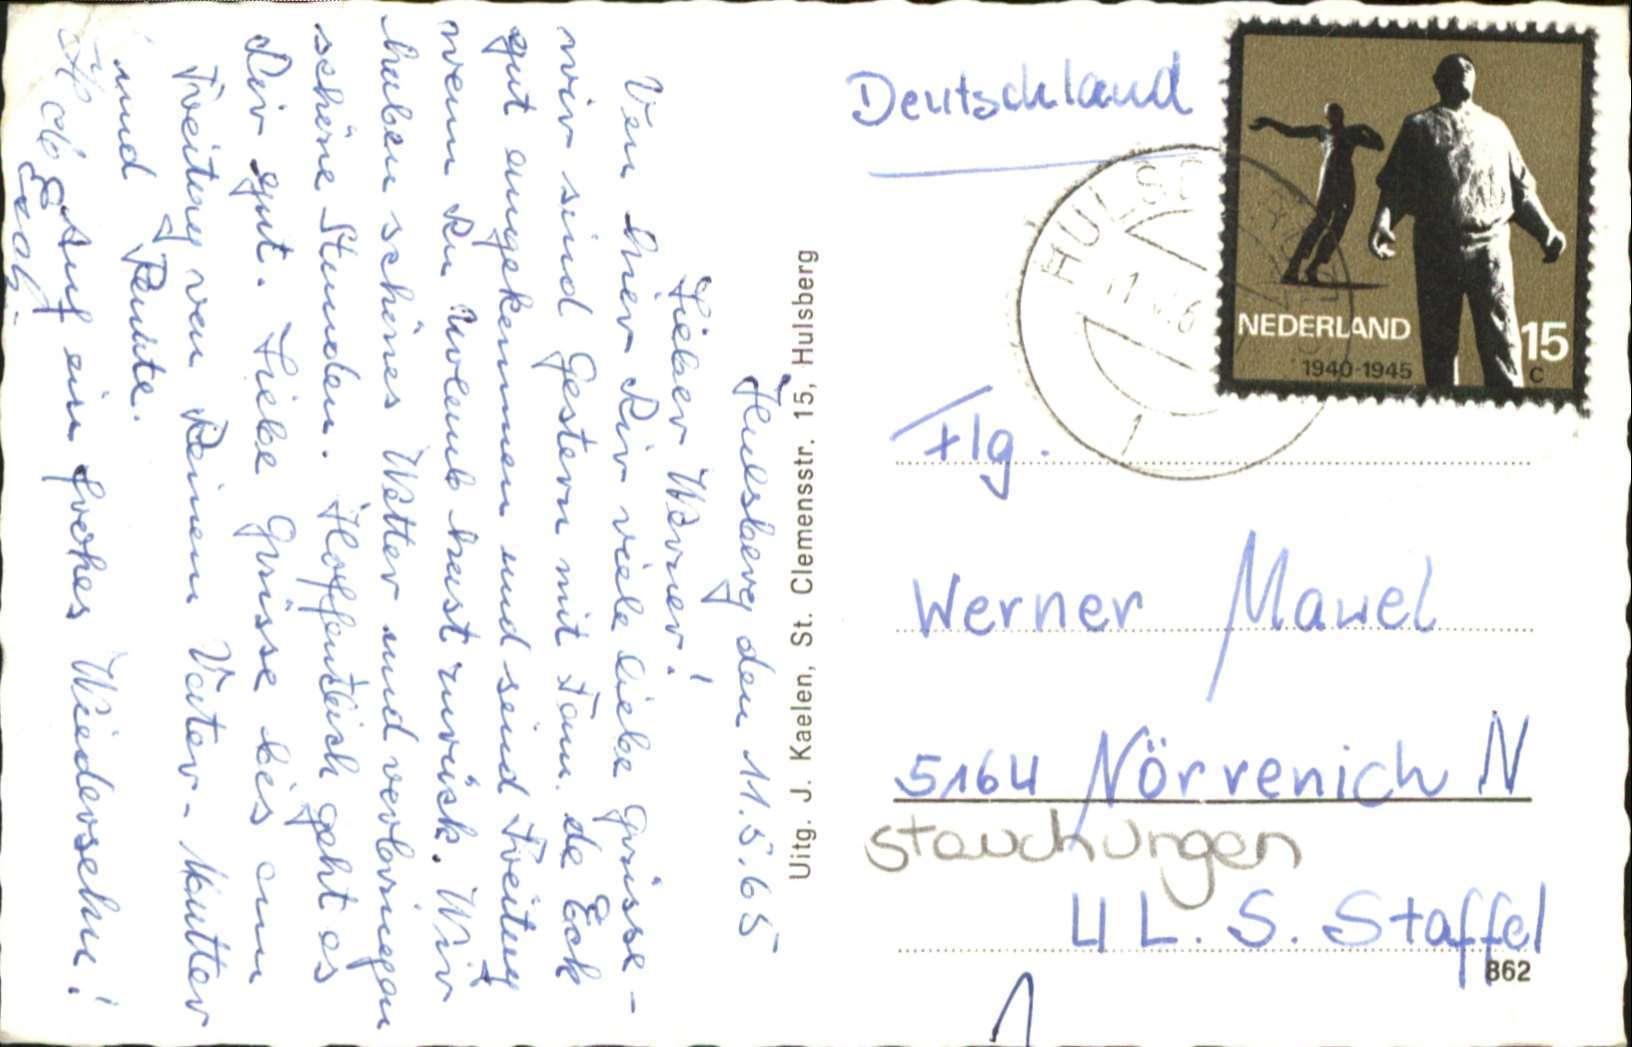 Hulsberg den 11.5.65
Lieber Werner!
Von hier Dir viele liebe Grüsse -
wir sind Gestern mit Fam. de Eck
gut angekommen und seind Freitag
wenn Du Urlaub hast zurück. Wir
haben schönes Wetter und verbringen
schöne Stunden. Hoffentlich geht es
Dir gut. Liebe Grüsse bis am
Freitag von Deinem Vater - Mutter
und Beate.
Auf ein frohes Wiedersehn!
Uitg. J. Kaelen, St. Clemensstr. 15, Hulsberg
Deutschland
HULSBERG
NEDERLAND
15
c
1940-1945
1
Flg.
Werner Mauel
5164 Nörvenich N
stauchungen
4 L. S. Staffel
862
1